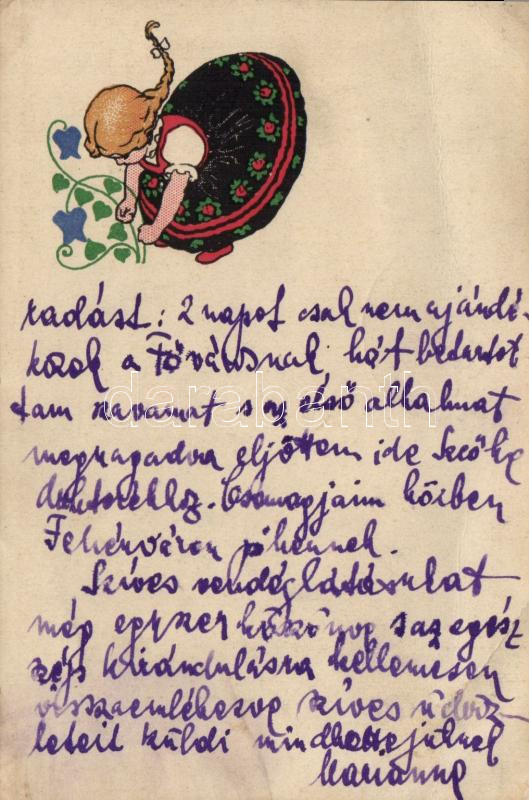 radást: 2 napot csak nem ajándé-
kozok a Fővárosnak, hát betartot
tam szavamat s az első alkalmat
megragadva eljöttem ide Szőke
doktorékhoz. Csomagjaim közben
Fehérváron pihennek.
Szíves vendéglátásukat
még egyszer köszönve s az egész
szép kirándulásra kellemesen
visszaemlékezve szíves üdvöz-
leteit küldi mindkettőjüknek
Marianne
darabanth